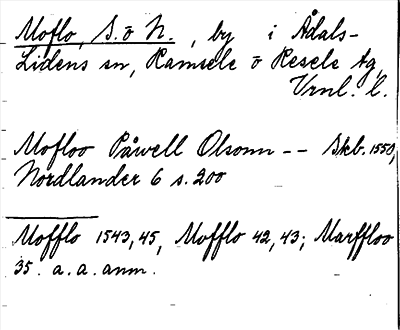 Moflo, S. o N., by i Ådals-
Lidens sn, Ramsele o Resele tg,
Vrnl. l.
Mofloo Påwell Olsonn -- Skb. 1550,
Nordlander 6 s. 200
Mofflo 1543, 45, Mofflo 42, 43; Marffloo
35. a. a. anm.